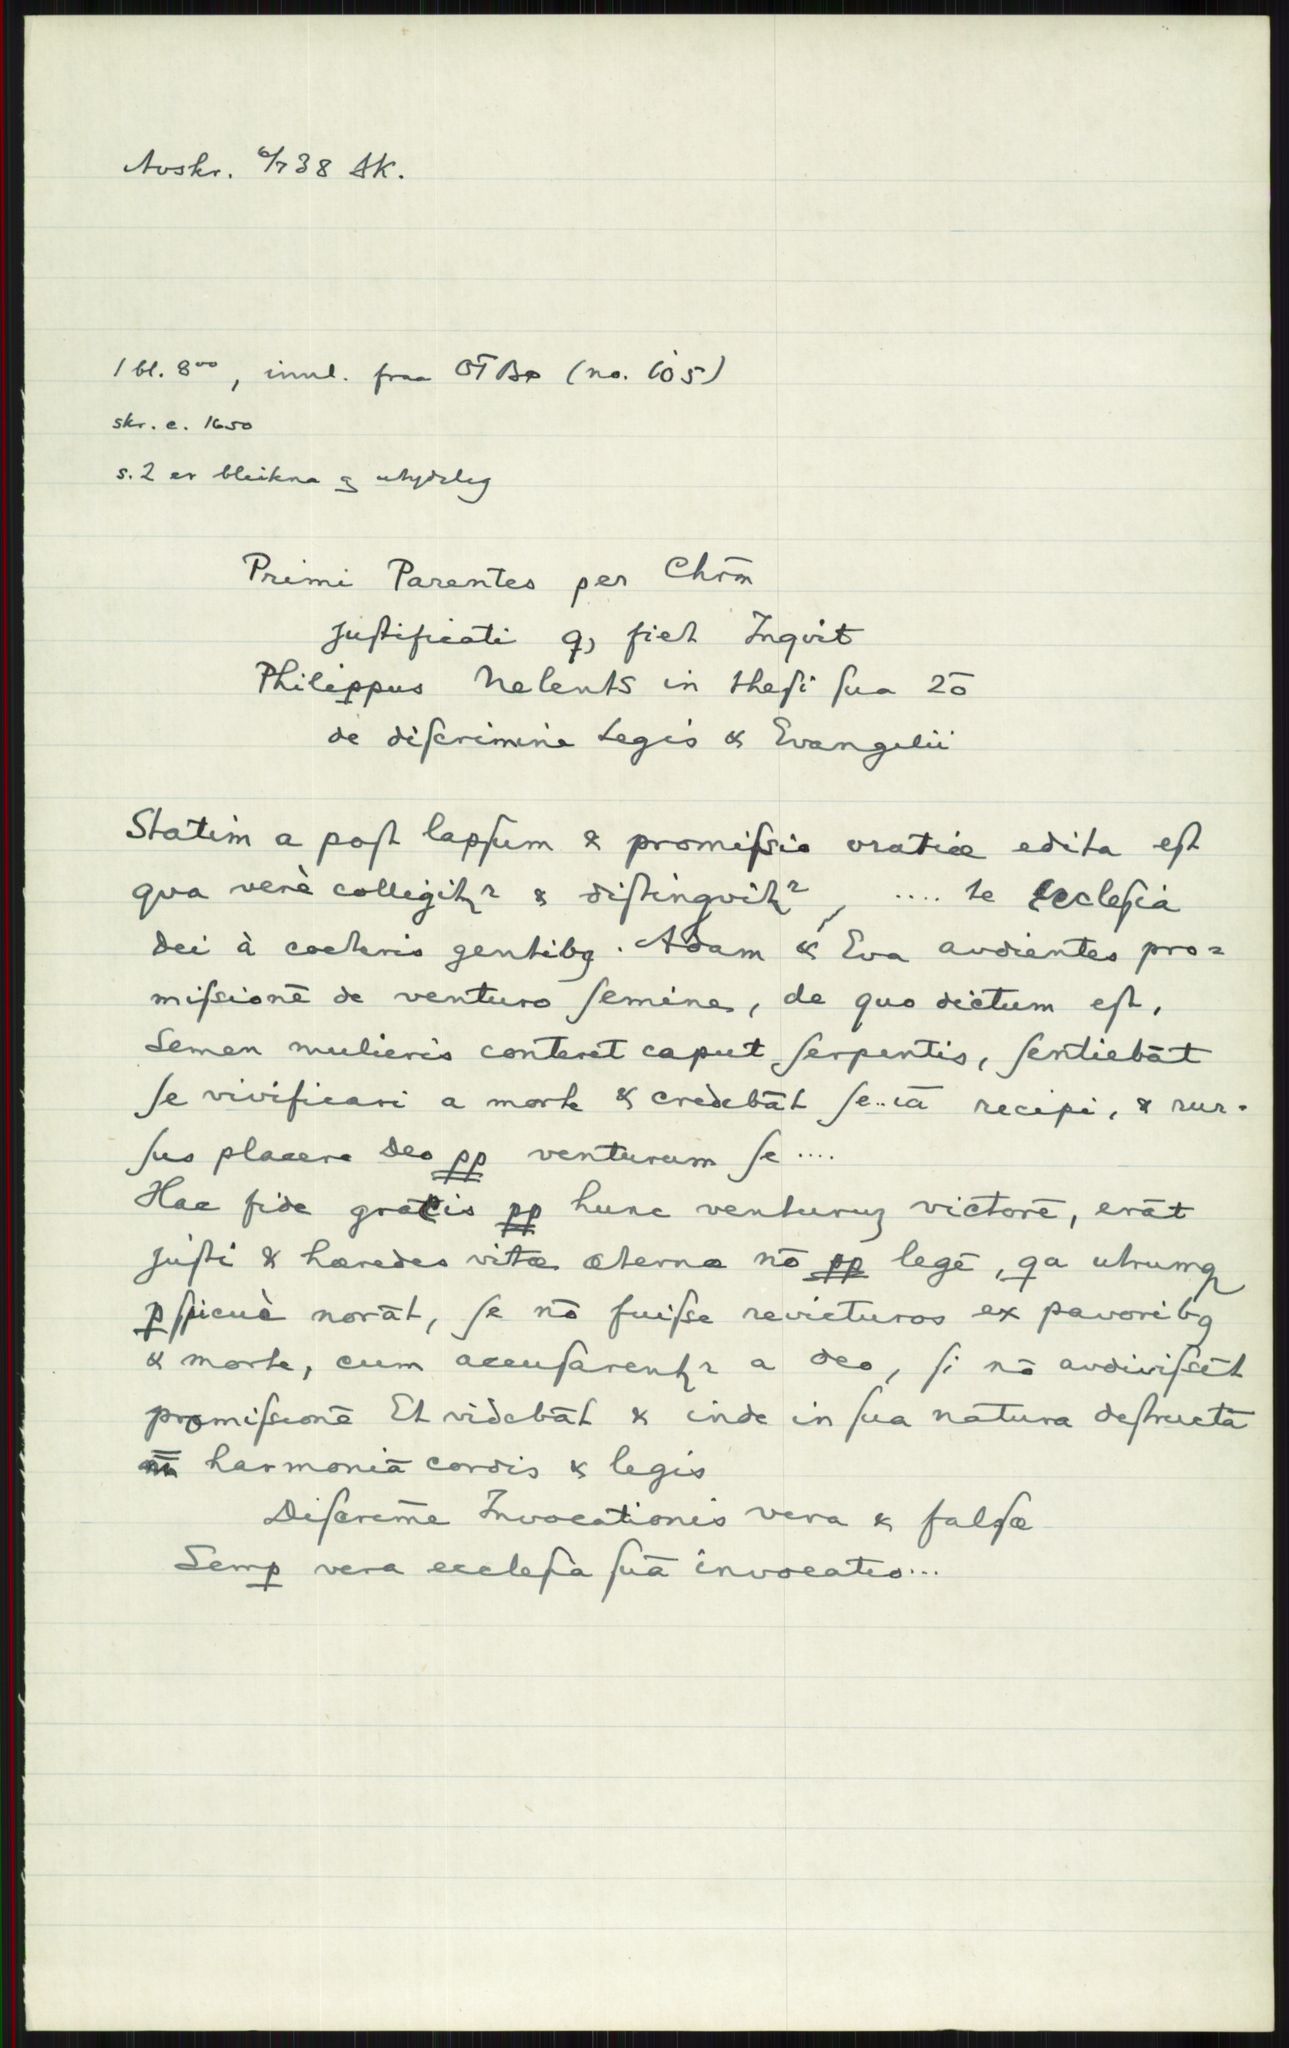 Avskr. 6/7 38 AK.
1 bl. 8⁰⁰, innl. fraa OTBø (no. 105)
skr. c. 1650
s. 2 er bleikna og utydeleg
Primi Parentes per Chr̄m
juſtificati q, fieh Inqvit
Philippus Melents in theſi ſua 2ō
de diſcrimine Legis & Evangelii
Statim a poſt lapſum & promiſsio oratiæ edita eſt
qva verè collegitꝛ & diſtingvitꝛ, .... te Ecclesia
Dei à coeteris gentibꝫ. Adam & Eva avdientes pro=
miſsionē de venturo ſemine, de quo dictum eſt,
Semen mulieris conteret caput ſerpentis, ſentiebāt
ſe vivificari a morte & credebāt ſe..iā recipi, & rur-
ſus placere Deo pp venturum ſe ....
Hac fide gratis pp hunc venturuꝫ victorē, erāt
juſti & hæredes vitæ æternæ nō pp legē, qa utrumq
pſpicuè norāt, ſe nō fuiſse revicturos ex pavoribꝫ
& morte, cum accuſarentꝛ a deo, ſi nō avdiviſsēt
promiſsionē Et videbāt & inde in ſua natura deſtructā
harmoniā cordis & legis
Diſcrim̄e Invocationis vera & falſæ
Semp vera eccleſia ſuā invocatio...